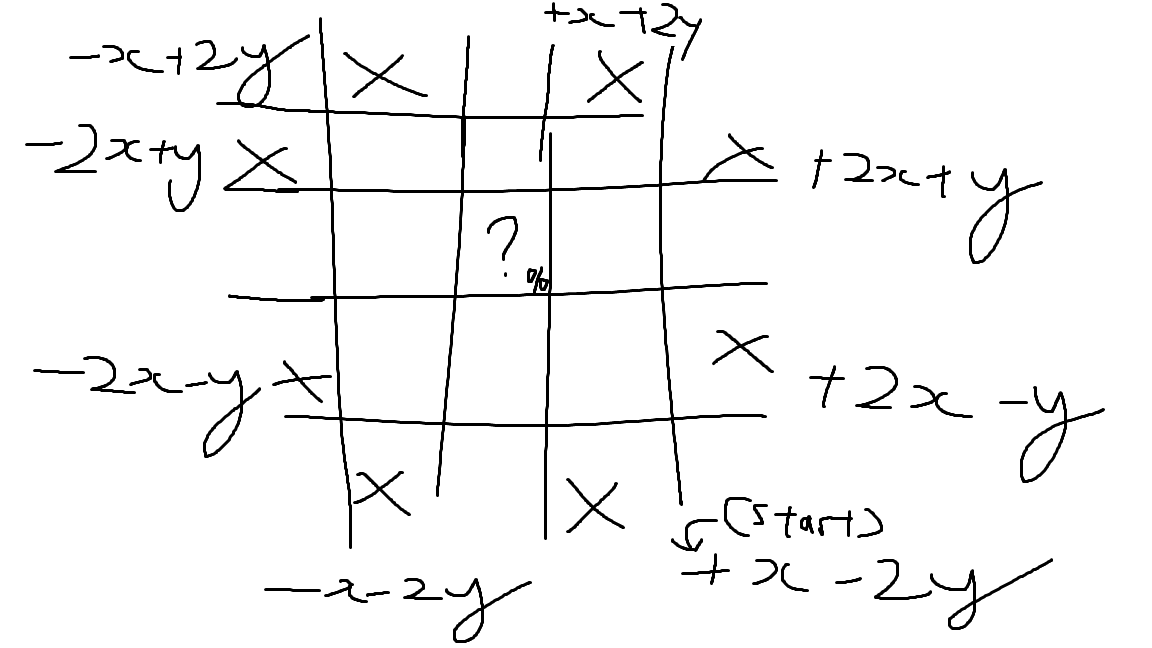 +x+2y
-x+2y X X
-2x+y X X +2x+y
?
%
-2x-y X X +2x-y
X X (start)
-x-2y +x-2y